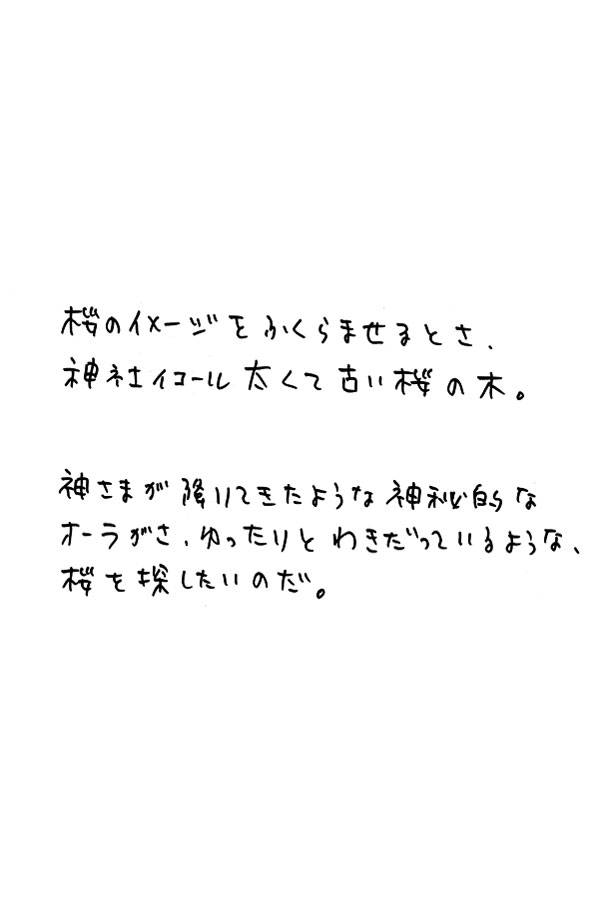 桜のイメージをふくらませるとき、
神社イコール太くて古い桜の木。
神さまが降りてきたような神秘的な
オーラがさ、ゆったりとわきだっているような、
桜を探したいのだ。